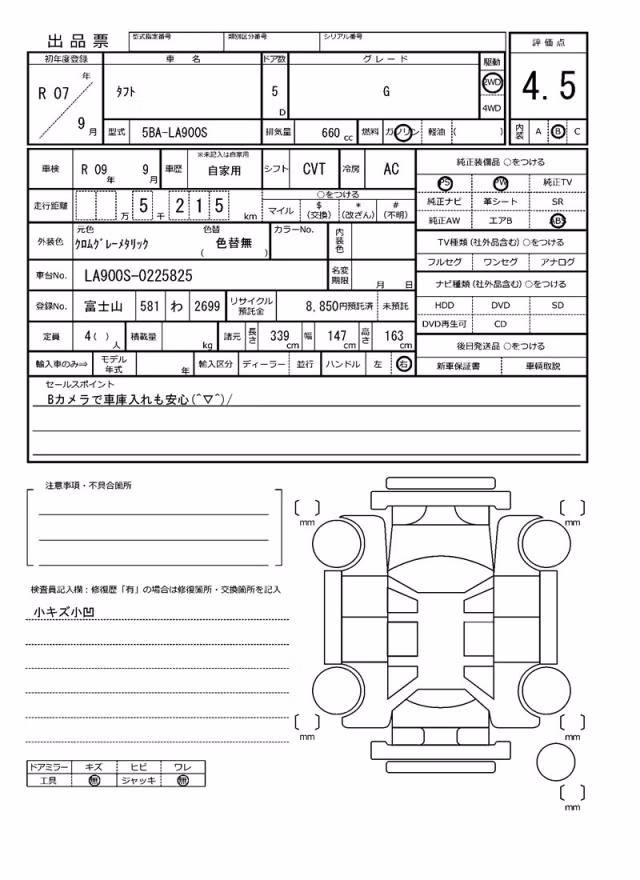 出品票 型式指定番号 類別区分番号 シリアル番号
初年度登録 車名 ドア数 グレード 駆動 評価点
R 07 年 9 月 ﾀﾌﾄ 5 D G 2WD 4WD 4.5
型式 5BA-LA900S 排気量 660 cc 燃料 ガソリン 軽油 ( ) 内装 A B C
車検 R 09 年 9 月 車歴 ※未記入は自家用 自家用 シフト CVT 冷房 AC 純正装備品 ○をつける
PS PW 純正TV
走行距離 万 5 千 2 1 5 km ○をつける
マイル $ (交換) * (改ざん) # (不明)
純正ナビ 革シート SR
純正AW エアB ABS
外装色 元色 ｸﾛﾑｸﾞﾚｰﾒﾀﾘｯｸ 色替 ( 色替無 ) カラーNo. 内装色
TV種類 (社外品含む) ○をつける
フルセグ ワンセグ アナログ
車台No. LA900S-0225825 名変期限 月 日
ナビ種類 (社外品含む) ○をつける
登録No. 富士山 581 わ 2699 リサイクル預託金 8,850円預託済 未預託
HDD DVD SD
DVD再生可 CD
定員 4 ( ) 人 積載量 kg 諸元 長さ 339 cm 幅 147 cm 高さ 163 cm
後日発送品 ○をつける
輸入車のみ⇒ モデル年式 年 輸入区分 ディーラー 並行 ハンドル 左 右
新車保証書 車輌取説
セールスポイント
Bカメラで車庫入れも安心(^▽^)/
注意事項・不具合箇所
mm mm
検査員記入欄：修復歴「有」の場合は修復箇所・交換箇所を記入
小キズ小凹
mm mm
ドアミラー キズ ヒビ ワレ
工具 無 ジャッキ 無
mm